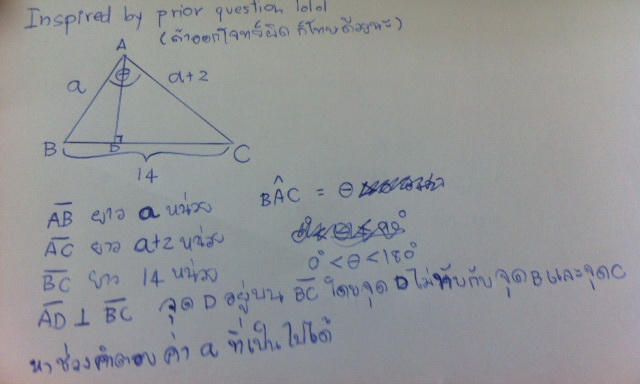 Inspired by prior question lolol
(ถ้าออกโจทย์ผิด ก็โทษทีด้วยนะ)
A
θ
a
a+2
B
D
C
14
AB ยาว a หน่วย
BÂC = θ
AC ยาว a+2 หน่วย
0° < θ < 180°
BC ยาว 14 หน่วย
AD ⊥ BC จุด D อยู่บน BC โดยจุด D ไม่ทับกับ จุด B และจุด C
หาช่วงคำตอบ ค่า a ที่เป็นไปได้